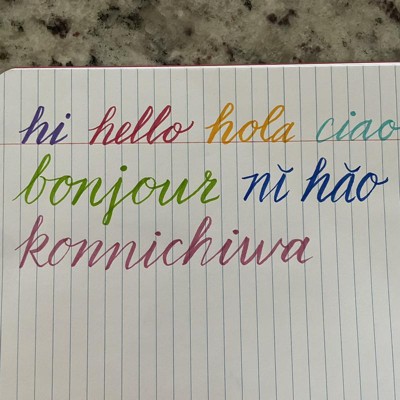 hi hello hola ciao
bonjour nĭ hăo
konnichiwa